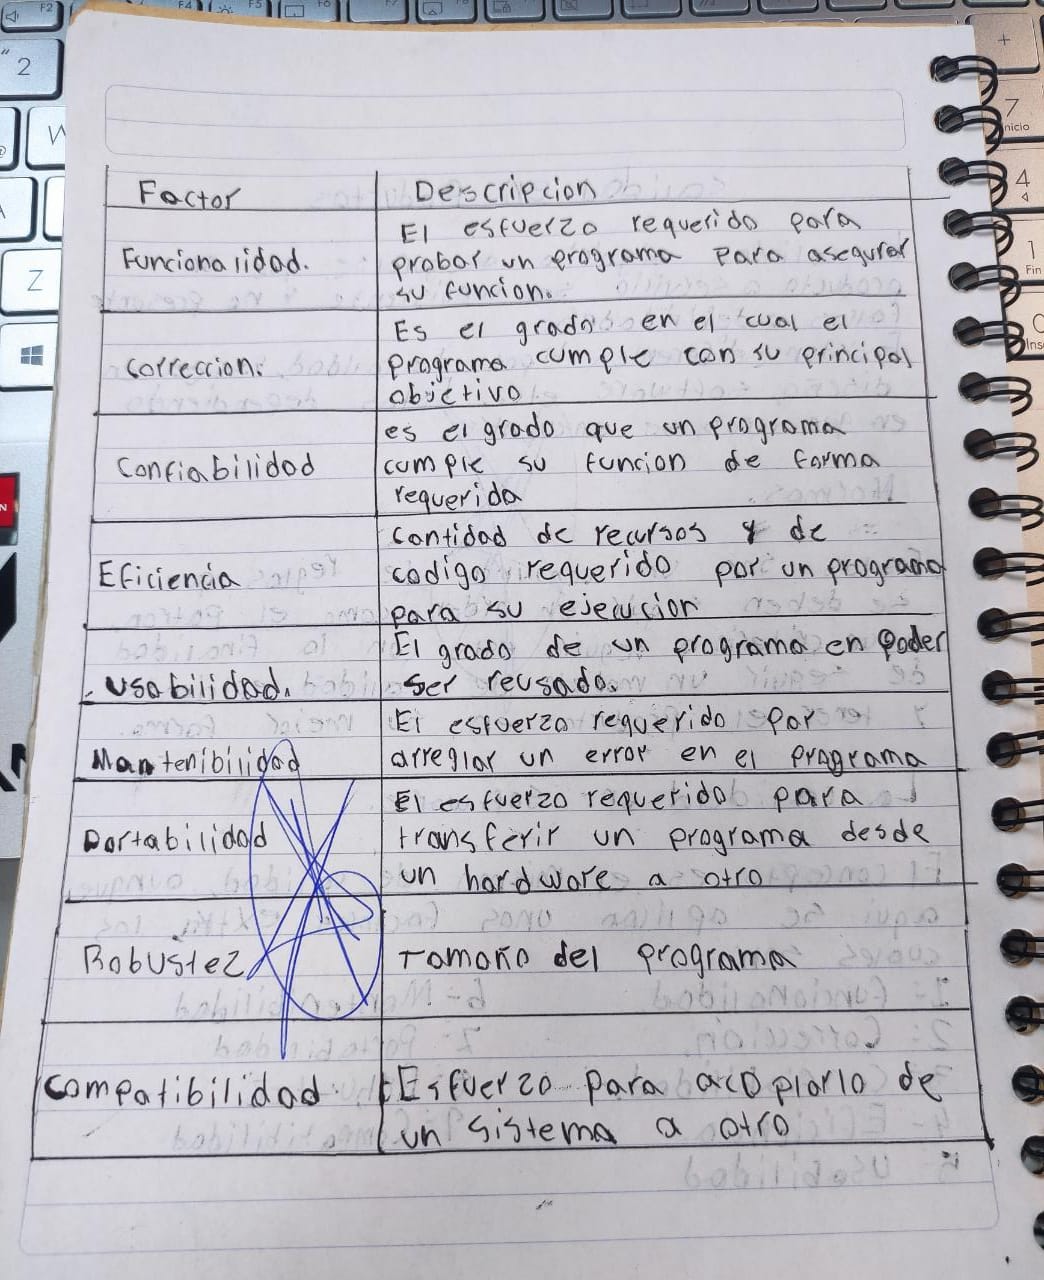 Factor
Descripcion
Funcionalidad.
El esfuerzo requerido para
probar un programa para asegurar
su funcion.
Correccion.
Es el grado en el cual el
programa cumple con su principal
objetivo
Confiabilidad
es el grado que un programa
cumple su funcion de forma
requerida
Eficiencia
Cantidad de recursos y de
codigo requerido por un programa
para su ejecucion
Usabilidad.
El grado de un programa en poder
ser reusado.
Mantenibilidad
El esfuerzo requerido por
arreglar un error en el programa
Portabilidad
El esfuerzo requerido para
transferir un programa desde
un hardware a otro
Robustez
Tamaño del programa
Compatibilidad
Esfuerzo para acoplarlo de
un sistema a otro